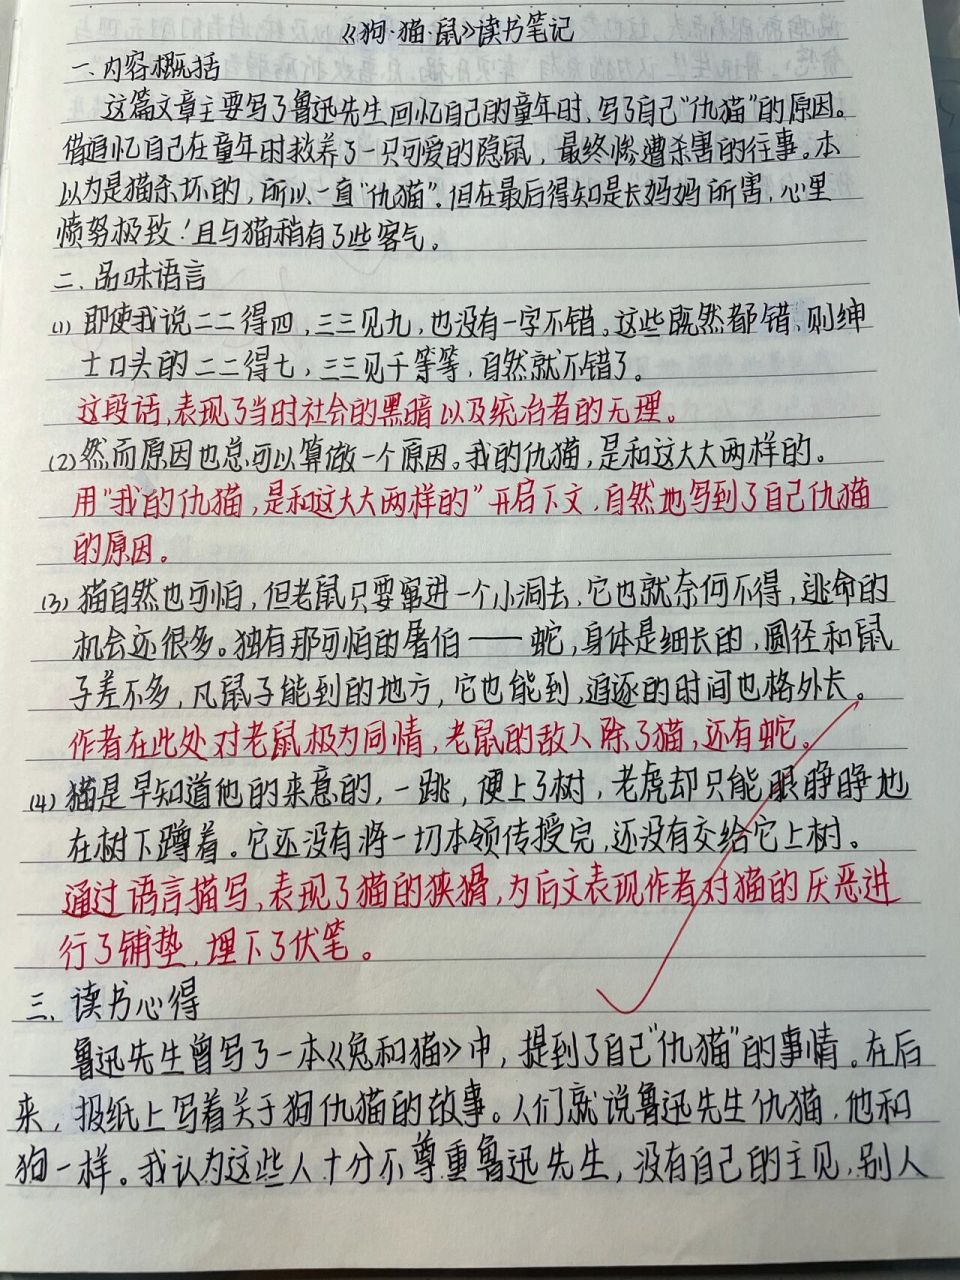 《狗·猫·鼠》读书笔记
一、内容概括
这篇文章主要写了鲁迅先生回忆自己的童年时、写了自己“仇猫”的原因。
借追忆自己在童年时救养了一只可爱的隐鼠，最终惨遭杀害的往事。本
以为是猫杀坏的，所以一直“仇猫”。但在最后得知是长妈妈所害，心里
愤努极致！且与猫稍有了些客气。
二、品味语言
(1) 即使我说二二得四，三三见九，也没有一字不错。这些既然都错，则绅
士口头的二二得七，三三见千等等，自然就不错了。
这段话，表现了当时社会的黑暗以及统治者的无理。
(2) 然而原因也总可以算做一个原因。我的仇猫，是和这大大两样的。
用“我的仇猫，是和这大大两样的”开启下文，自然地写到了自己仇猫
的原因。
(3) 猫自然也可怕，但老鼠只要窜进一个小洞去，它也就奈何不得，逃命的
机会还很多。独有那可怕的屠伯——蛇，身体是细长的，圆径和鼠
子差不多，凡鼠子能到的地方，它也能到，追逐的时间也格外长。
作者在此处对老鼠极为同情，老鼠的敌人除了猫，还有蛇。
(4) 猫是早知道他的来意的，一跳，便上了树，老虎却只能眼睁睁地
在树下蹲着。它还没有将一切本领传授完，还没有交给它上树。
通过语言描写，表现了猫的狭猾，为后文表现作者对猫的厌恶进
行了铺垫，埋下了伏笔。
三、读书心得
鲁迅先生曾写了一本《兔和猫》中，提到了自己“仇猫”的事情。在后
来，报纸上写着关于狗仇猫的故事。人们就说鲁迅先生仇猫，他和
狗一样。我认为这些人十分不尊重鲁迅先生，没有自己的主见，别人